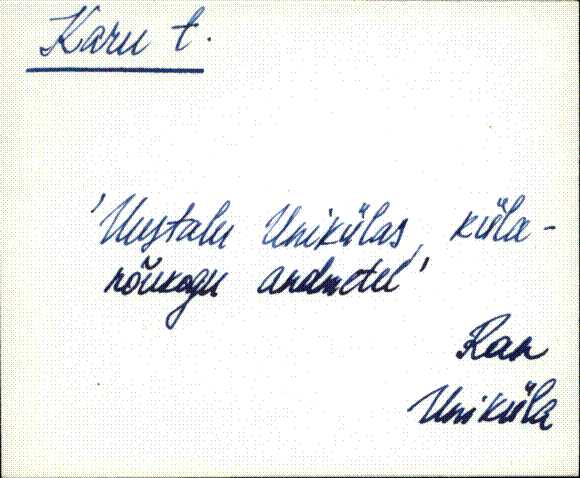 Karu t.
'Uustalu Unikülas, küla-
nõukogu andmetel'
Ran
Uniküla